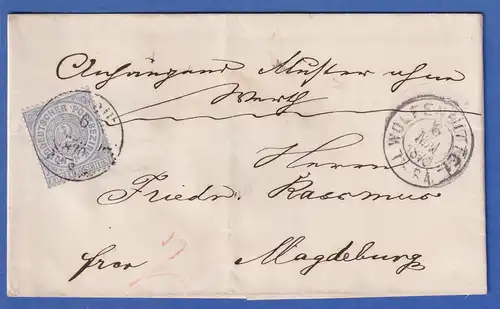 Anhängend Muster ohne
Werth
Herrn
Friedr. Rassmus
frco Magdeburg
NORDDEUTSCHER POSTBEZIRK
WOLFENBÜTTEL
6
NOV